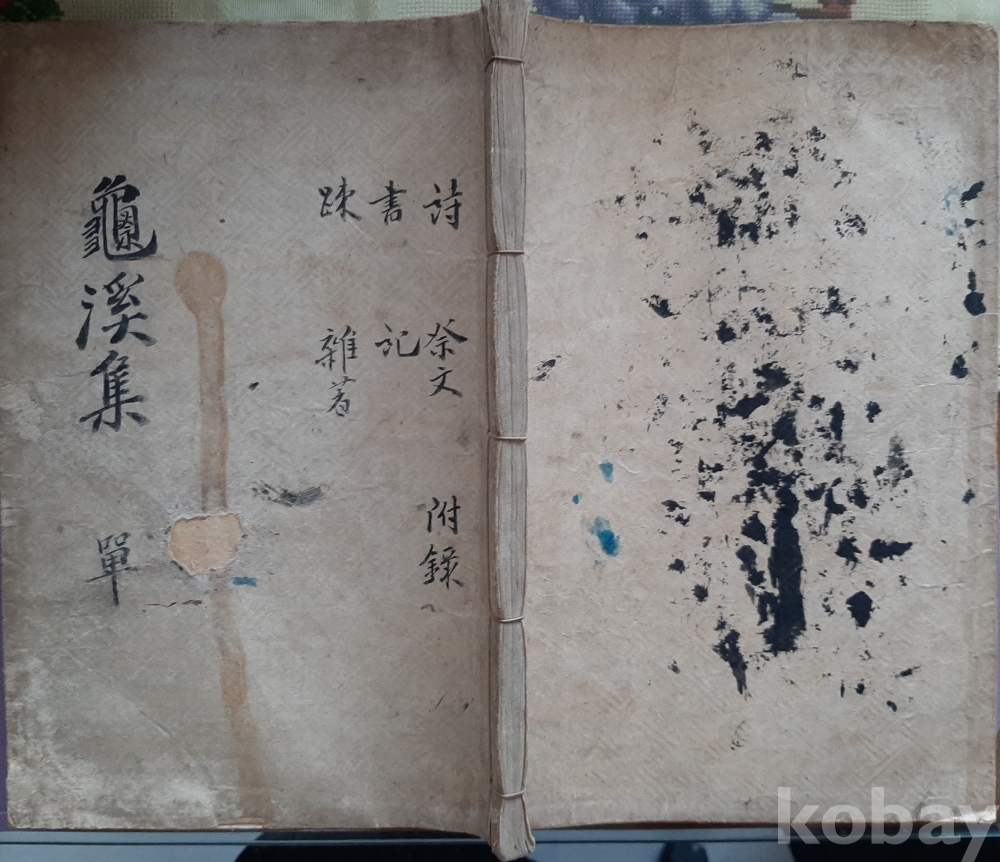 龜溪集 單
詩 祭文 附錄
書 記
疎 雜著
kobay